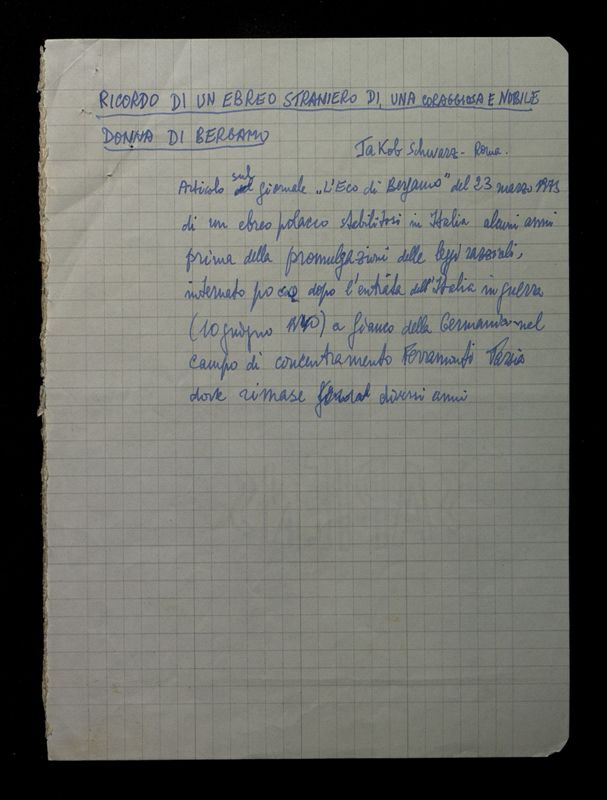 RICORDO DI UN EBREO STRANIERO DI UNA CORAGGIOSA E NOBILE
DONNA DI BERGAMO
Jakob Schwarz - Roma.
Articolo sul giornale „L'Eco di Bergamo" del 23 marzo 1973
di un ebreo polacco stabilitosi in Italia alcuni anni
prima della promulgazioni delle leggi razziali,
internato poco dopo l'entrata dell'Italia in guerra
(10 giugno 1940) a fianco della Germania nel
campo di concentramento Ferramonti Tarsia
dove rimase diversi anni